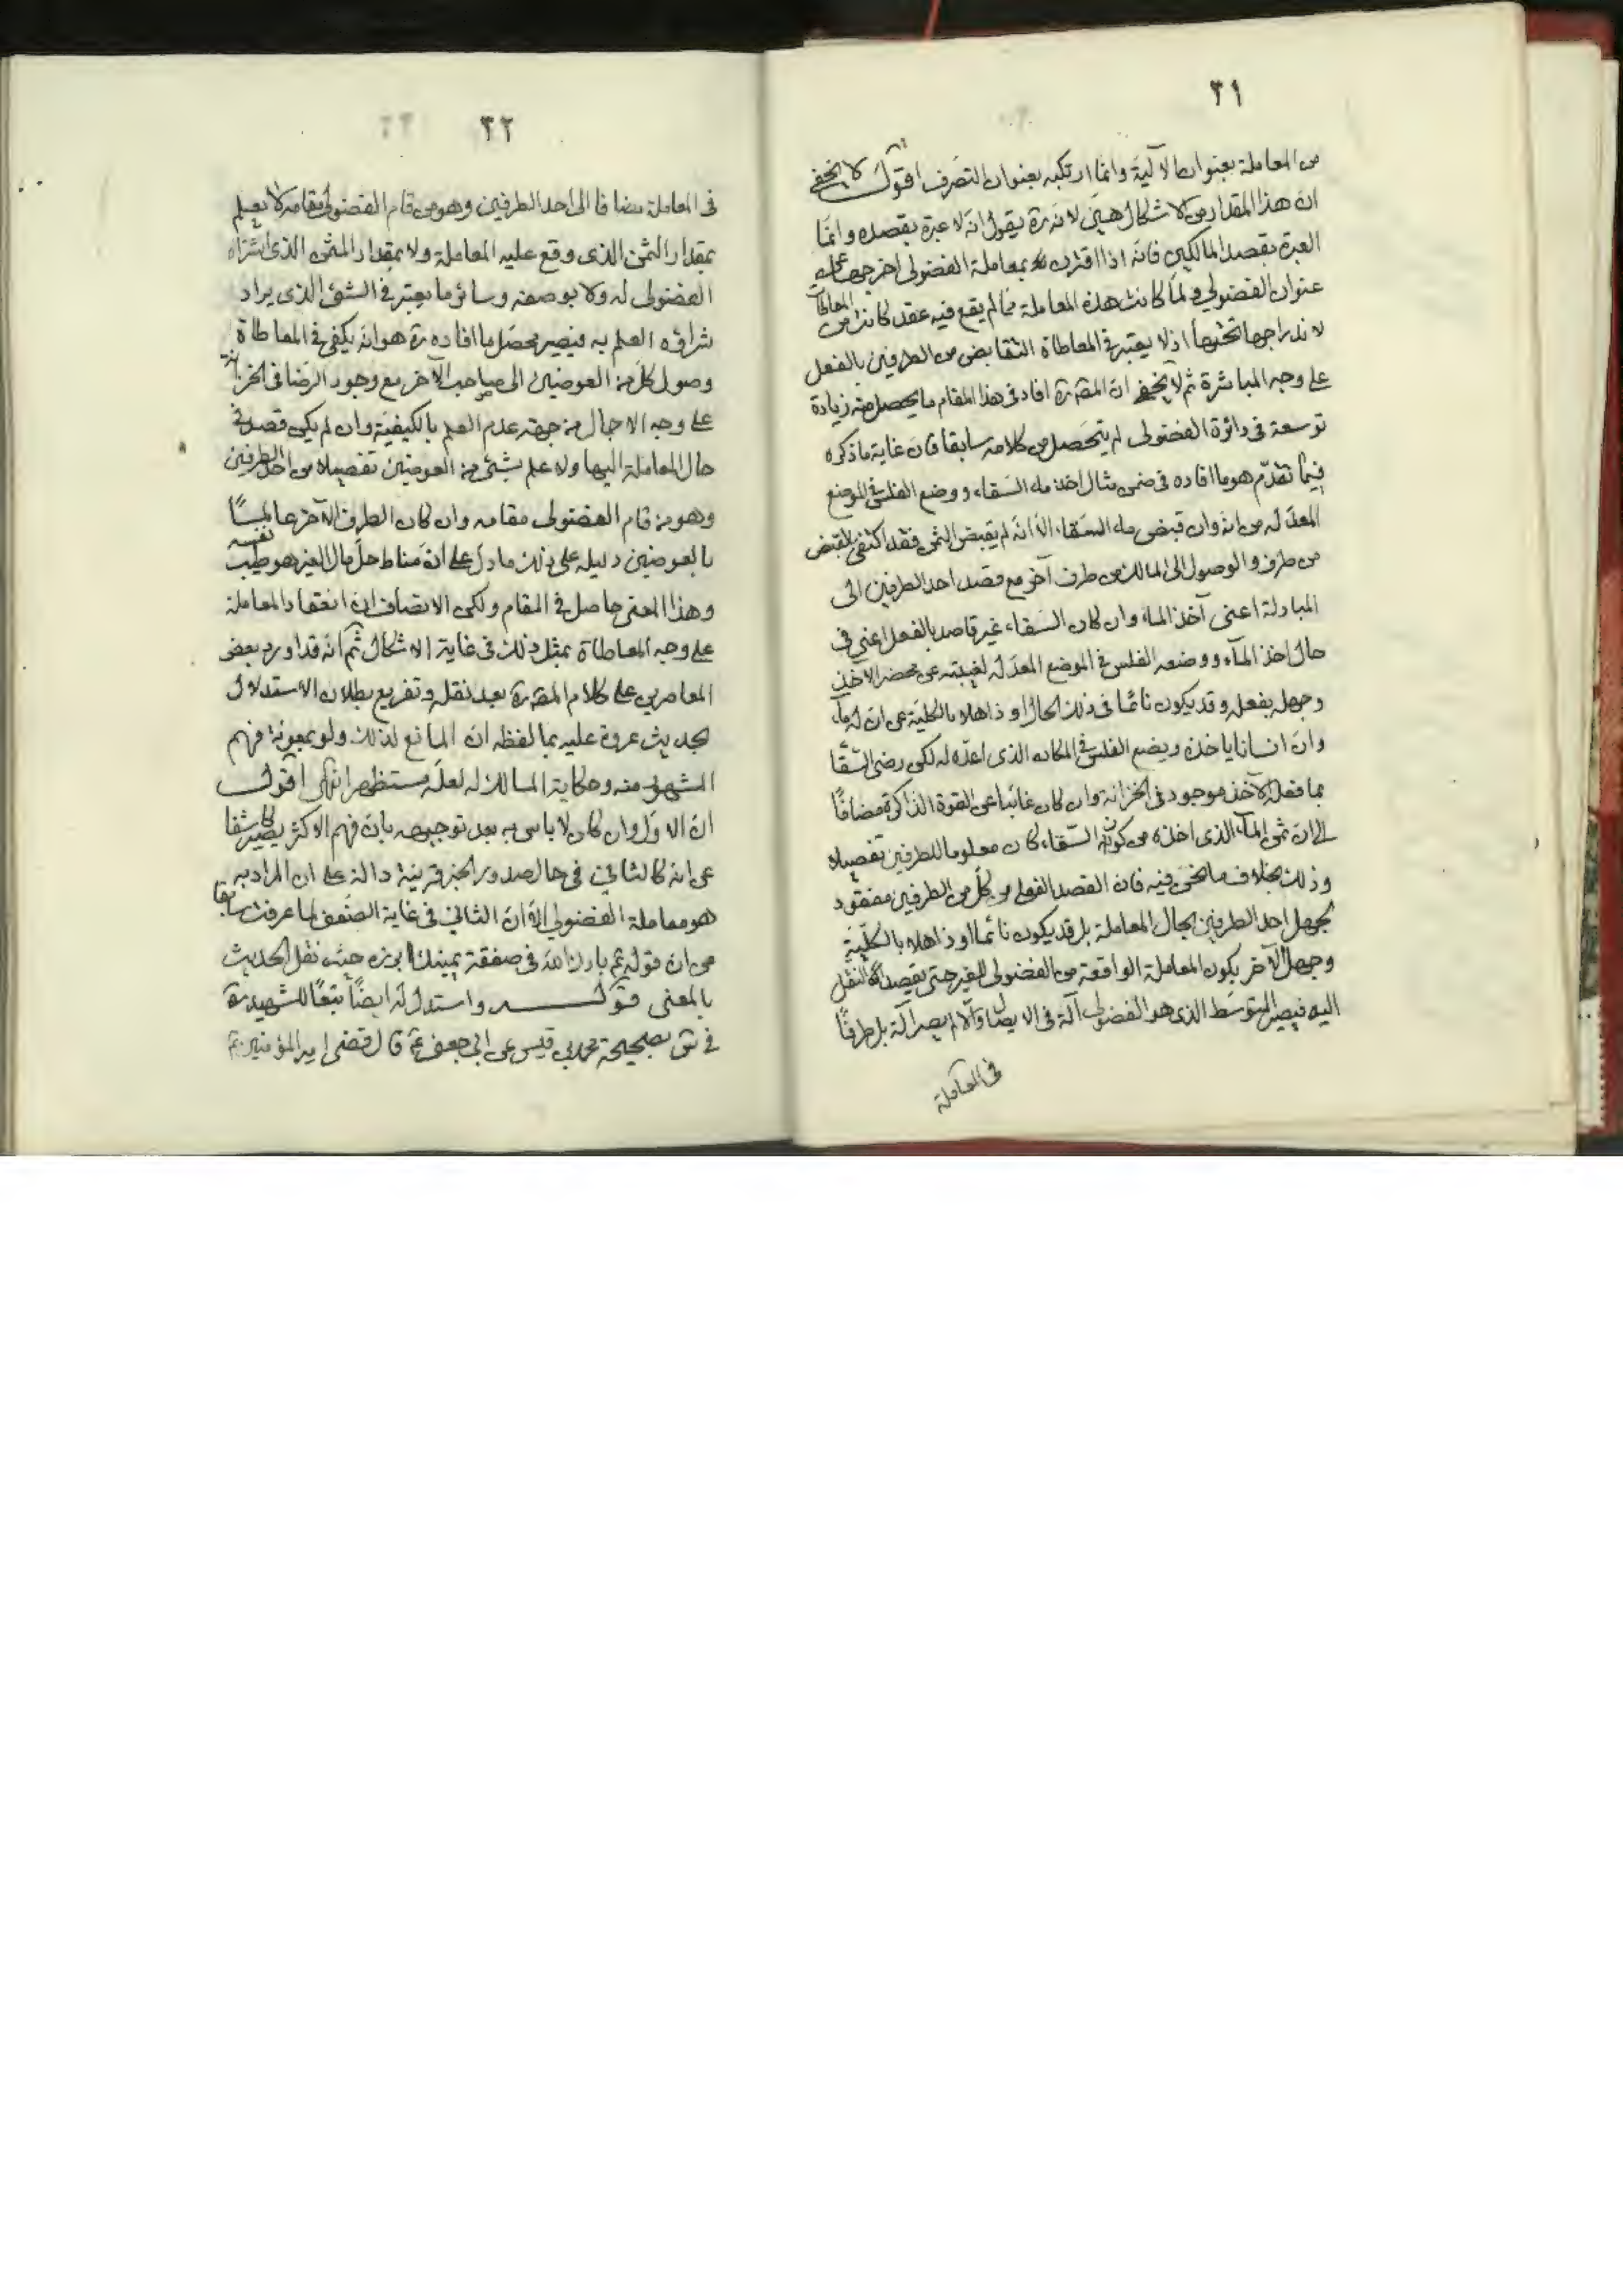 ٣١
من المعاملة بعنوان الآلية وانما ارتكبه بعنوان التصرف اقول لا يخفى
ان هذا المقدار من الاشكال هين لانه ره يقول انه لا عبرة بقصده وانما
العبرة بقصد المالكين فانه اذا اقترن بمعاملة الفضولى اخرجها عن
عنوان الفضولي ولما كانت هذه المعاملة مما لم يقع فيه عقد كانت من المعاطاة
لاندراجها تحتها اذ لا يعتبر فى المعاطاة التقابض من الطرفين بالفعل
على وجه المباشرة ثم لا يخفى ان المص ره افاد فى هذا المقام ما يحصل منه زيادة
توسعة فى دائرة الفضولى لم يتحصل من كلامه سابقا فان غاية ما ذكره
فيما تقدم هو ما افاده فى ضمن مثال اخذ ماء السقاء ووضع الفلس فى الموضع
المعد له من انه وان قبض ماء السقاء الا انه لم يقبض الثمن فقد اكتفى بالقبض
من طرف والوصول الى المالك من طرف آخر مع قصد احد الطرفين الى
المبادلة اعنى آخذ الماء وان كان السقاء غير قاصد بالفعل اعني فى
حال اخذ الماء ووضعه الفلس فى الموضع المعد له لغيبته عن محضر الاخذ
وجهله بفعله وقد يكون نائما فى ذلك الحال او ذاهلا بالكلية عن ان له ماء
وان انسانا ياخذه ويضع الفلس فى المكان الذى اعده له لكن رضى السقا
بما فعله الآخذ موجود فى الخزانة وان كان غائبا عن القوة الذاكرة مضافا
الى ان ثمن الماء الذى اخذه من كوز السقاء كان معلوما للطرفين تفصيلا
وذلك بخلاف ما نحن فيه فان القصد الفعلى من كل من الطرفين مفقود
لجهل احد الطرفين بحال المعاملة بل قد يكون نائما او ذاهلا بالكلية
وجهل الآخر بكون المعاملة الواقعة من الفضولى للغير حتى يقصد النقل
اليه فيصير المتوسط الذى هو الفضولى آلة فى الايصال والا لم يصر آلة بل طرفا
فى المعاملة
٣٢
فى المعاملة مضافا الى احد الطرفين وهو من قام الفضولى مقامه لا يعلم
بمقدار الثمن الذى وقع عليه المعاملة ولا بمقدار المثمن الذى اشتراه
الفضولى له ولا بوصفه وسائر ما يعتبر فى الشئ الذى يراد
شراؤه العلم به فيصير محصل ما افاده ره هو انه يكفى فى المعاطاة
وصول كل من العوضين الى صاحب الآخر مع وجود الرضا فى الخزانة
على وجه الاجمال من جهة عدم العلم بالكيفية وان لم يكن قصد فى
حال المعاملة اليها ولا علم بشئ من العوضين تفصيلا من احد الطرفين
وهو من قام الفضولى مقامه وان كان الطرف الآخر عالما
بالعوضين دليله على ذلك ما دل على ان مناط حل مال الغير هو طيب نفسه
وهذا المعنى حاصل فى المقام ولكن الانصاف ان انعقاد المعاملة
على وجه المعاطاة بمثل ذلك فى غاية الاشكال ثم انه قد اورد بعض
المعاصرين على كلام المص ره بعد نقله وتفريع بطلان الاستدلال
لحديث عروة عليه بما لفظه ان المانع لذلك ولو بمعونة فهم
المشهور منه وحكاية المالك له لعله مستظهر انتهى اقول
ان الاول وان كان لا باس به بعد توجيهه بان فهم الاكثر يصير كاشفا
عن انه كان ثابت فى حال صدور الخبر قرينة دالة على ان المراد به
هو معاملة الفضولي الا ان الثانى فى غاية الضعف لما عرفت سابقا
من ان قوله ع بارك الله فى صفقة يمينك ابرزه حيث نقل الحديث
بالمعنى قوله واستدل له ايضا تبعا للشهيد ره
فى س بصحيحة محمد بن قيس عن ابى جعفر ع قال قضى امير المؤمنين ع